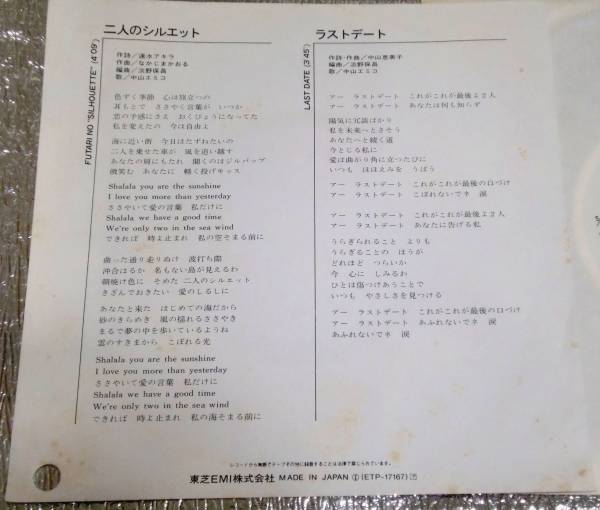 二人のシルエット
FUTARI NO "SILHOUETTE" (4'09")
作詩/速水アキラ
作曲/なかじまかおる
編曲/淡野保昌
歌/中山エミコ
色づく季節 心は旅立つの
耳もとで ささやく言葉が いつか
恋の予感にさえ おくびょうになってた
私を変えたの 今は自由よ
海に近い街 今日はたずねたいの
二人を乗せた車が 風を追い越す
あなたの肩にもたれ 聞くのはジルバップ
微笑む あなたに 軽く投げキッス
Shalala you are the sunshine
I love you more than yesterday
ささやいて愛の言葉 私だけに
Shalala we have a good time
We're only two in the sea wind
できれば 時よ止まれ 私の空そまる前に
曲った通り走りぬけ 波打ち際
沖合はるか 名もない島が見えるわ
朝焼け色に そめた 二人のシルエット
きざんでおきたい 愛のしるしに
あなたと来た はじめての海だから
砂のきらめき 風の揺れるささやき
まるで夢の中を歩いているようね
雲のすきまから こぼれる光
Shalala you are the sunshine
I love you more than yesterday
ささやいて愛の言葉 私だけに
Shalala we have a good time
We're only two in the sea wind
できれば 時よ止まれ 私の海そまる前に
ラストデート
LAST DATE (3'45")
作詩・作曲/中山恵美子
編曲/淡野保昌
歌/中山エミコ
アー ラストデート これがこれが最後よ2人
アー ラストデート あなたは何も知らず
陽気に冗談ばかり
私を未来へとさそう
あなたへと続く道
今とじる私に
愛は曲がり角に立つたびに
いつも ほほえみを うばう
アー ラストデート これがこれが最後の口づけ
アー ラストデート こぼれないでネ 涙
アー ラストデート これがこれが最後よ2人
アー ラストデート あなたに告げる私
うらぎられること よりも
うらぎることの ほうが
どれほど つらいか
今 心に しみるわ
ひとは傷つけあうことで
いつも やさしさを見つける
アー ラストデート これがこれが最後の口づけ
アー ラストデート あふれないでネ 涙
あふれないでネ 涙
レコードから無断でテープその他に録音することは法律で禁じられています。
東芝EMI株式会社 MADE IN JAPAN (ETP-17167)